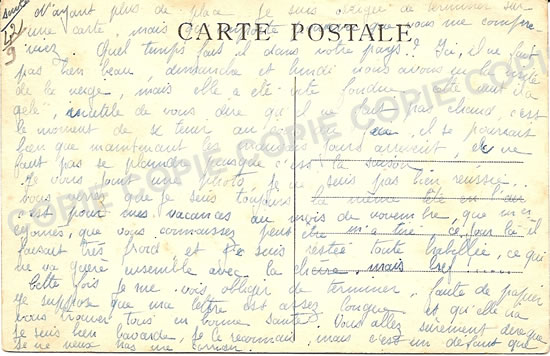 suite N'ayant plus de place je suis obligée de terminer sur
une carte, mais que vous me compre-
CARTE POSTALE
nez. Quel temps fait il dans votre pays? Ici, il ne fait
pas bien beau, dimanche et lundi nous avons eu
de la neige, mais elle a été vite fondue, cette nuit il a
gelé, inutile de vous dire qu'il ne fait pas chaud, c'est
le moment de se tenir au il se pourrait
bien que maintenant les mauvais jours arrivent, il ne
faut pas se plaindre puisque c'est la saison.
Je vous joins une photo, je ne suis pas bien réussie..
vous verrez que je suis toujours la même tête en l'air
c'est pour mes vacances au mois de novembre, que
que vous connaissez peut être m'a tiré, ce jour là il
faisait très froid et je suis restée toute habillée, ce qui
ne va guère ensemble avec la mais bref!
Cette fois je me vois obligée de terminer, faute de papier
je suppose que ma lettre est assez longue et qu'elle va
vous trouver tous en bonne santé. Vous allez sûrement dire que
je suis bien bavarde, je le reconnais, mais c'est un défaut que
je ne veux pas me
COPIE COPIE COPIE COPIE COPIE